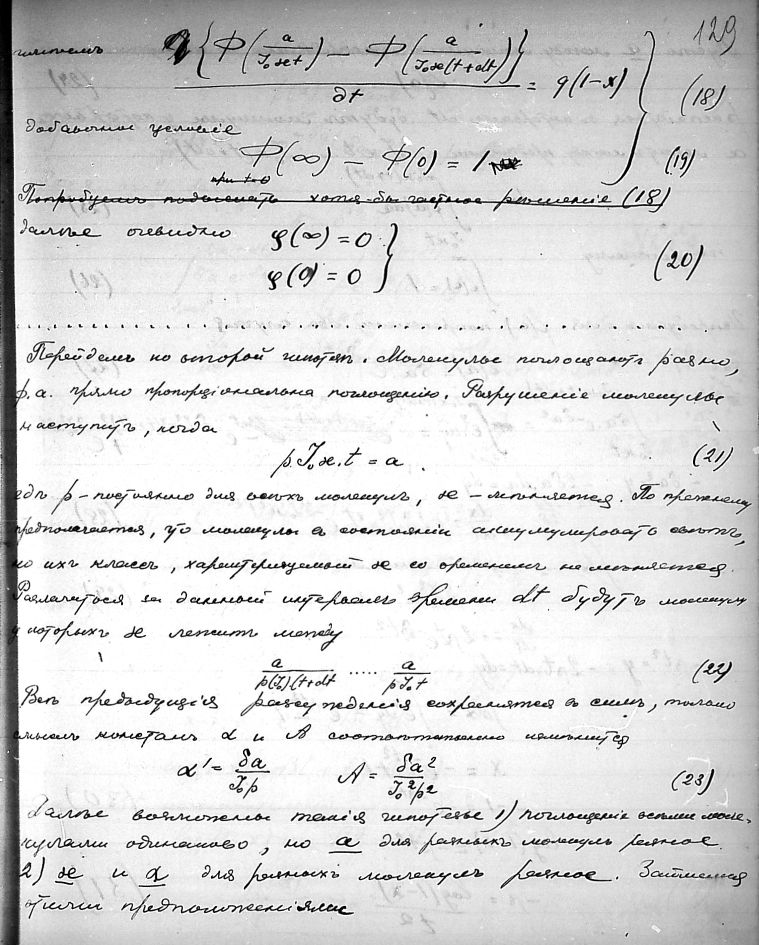 129
{Φ(a/J₀ϰt) − Φ(a/J₀ϰ(t+dt))} / ∂t = q(1−x) (18)
добавочное условіе
Φ(∞) − Φ(0) = 1 (19)
при t=0
Попробуемъ подыскать хотя-бы частное рѣшеніе (18)
далѣе очевидно φ(∞) = 0
φ(0) = 0 (20)
Перейдемъ ко второй гипотезѣ. Молекулы поглощаютъ разно,
ф.а. прямо пропорціональна поглощенію. Разрушеніе молекулы
наступитъ, когда
p J₀ ϰ. t = a. (21)
гдѣ p – постоянно для всѣхъ молекулъ, ϰ – мѣняется. По прежнему
предполагается, что молекулы въ состояніи аккумулировать свѣтъ,
но ихъ классъ, характеризуемый ϰ со временемъ не мѣняется.
Разложиться за данный интервалъ времени dt будутъ молекулы
у которыхъ ϰ лежитъ между
a/p(J₀)(t+dt) ..... a/pJ₀t (22)
Всѣ предыдущія разсужденія сохраняются въ силѣ, только
смыслъ констант α и A соотвѣтственно измѣнится
α' = δa/J₀p A = δa²/J₀²p² (23)
Далѣе возможны такія гипотезы 1) поглощеніе всѣми моле-
кулами одинаково, но a для разныхъ молекулъ разное.
2) ϰ и a для разныхъ молекулъ разное. Займемся
этими предположеніями